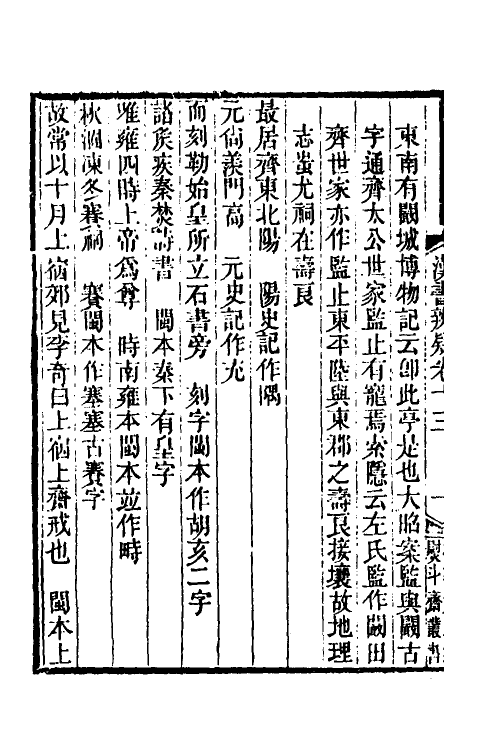 漢書辨疑卷十三 一 熨斗齋叢書
東南有闞城博物記云卽此亭是也大昭案監與闞古
字通齊太公世家監止有寵焉索隱云左氏監作闞田
齊世家亦作監止東平陸與東郡之壽良接壤故地理
志蚩尤祠在壽良
最居齊東北陽 陽史記作隅
元尚羨門高 元史記作充
而刻勒始皇所立石書旁 刻字閩本作胡亥二字
諸矦疾秦焚詩書 閩本秦下有皇字
唯雍四時上帝爲尊 時南雍本閩本並作畤
秋涸凍冬賽祠 賽閩本作塞塞古賽字
故常以十月上宿郊見李奇曰上宿上齋戒也 閩本上